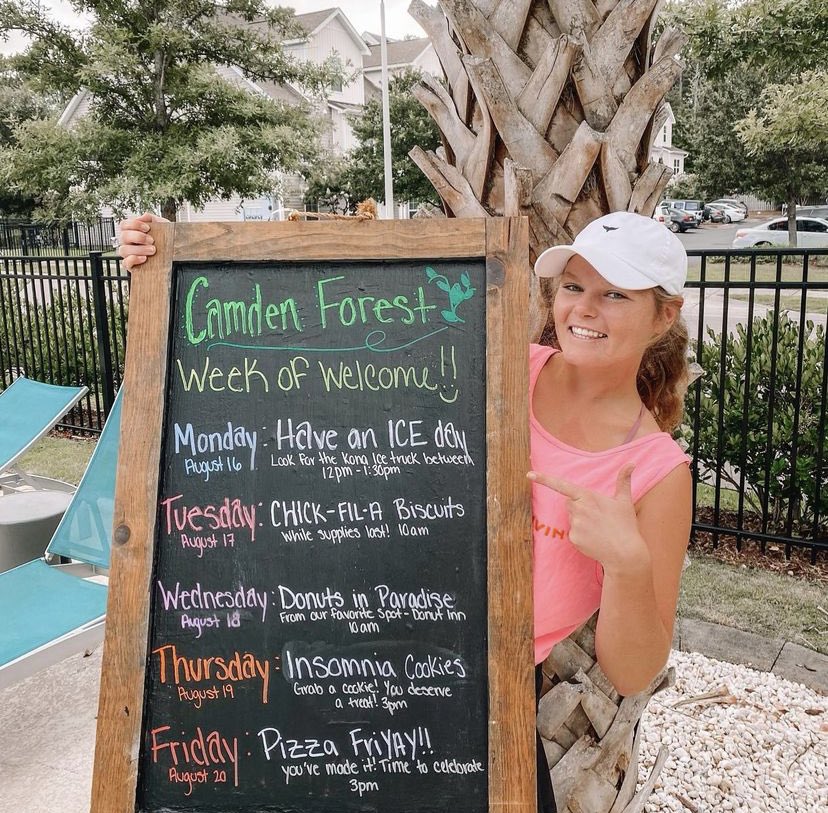 Camden Forest
Week of Welcome!!
Monday: Have an ICE day
August 16
Look For the Kona Ice truck between
12pm-1:30pm
Tuesday: CHICK-FIL-A Biscuits
August 17
while supplies last! 10am
Wednesday: Donuts in Paradise
August 18
From our favorite Spot- Donut Inn
10am
Thursday: Insomnia Cookies
August 19
Grab a cookie! You deserve
a treat! 3pm
Friday: Pizza FriYAY!!
August 20
you've made it! Time to celebrate
3pm